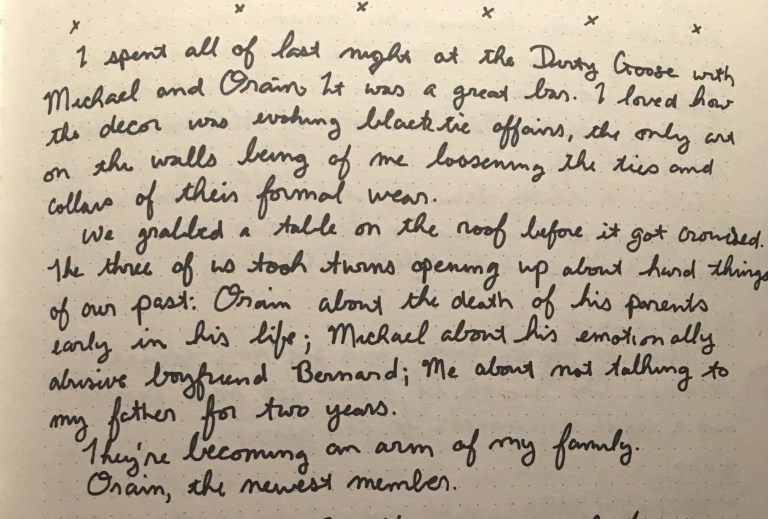 x x x x x x
I spent all of last night at the Dirty Goose with
Michael and Orain. It was a great bar. I loved how
the decor was evoking black tie affairs, the only art
on the walls being of me loosening the ties and
collars of their formal wear.
We grabbed a table on the roof before it got crowded.
The three of us took turns opening up about hard things
of our past: Orain about the death of his parents
early in his life; Michael about his emotionally
abusive boyfriend Bernard; Me about not talking to
my father for two years.
They're becoming an arm of my family.
Orain, the newest member.